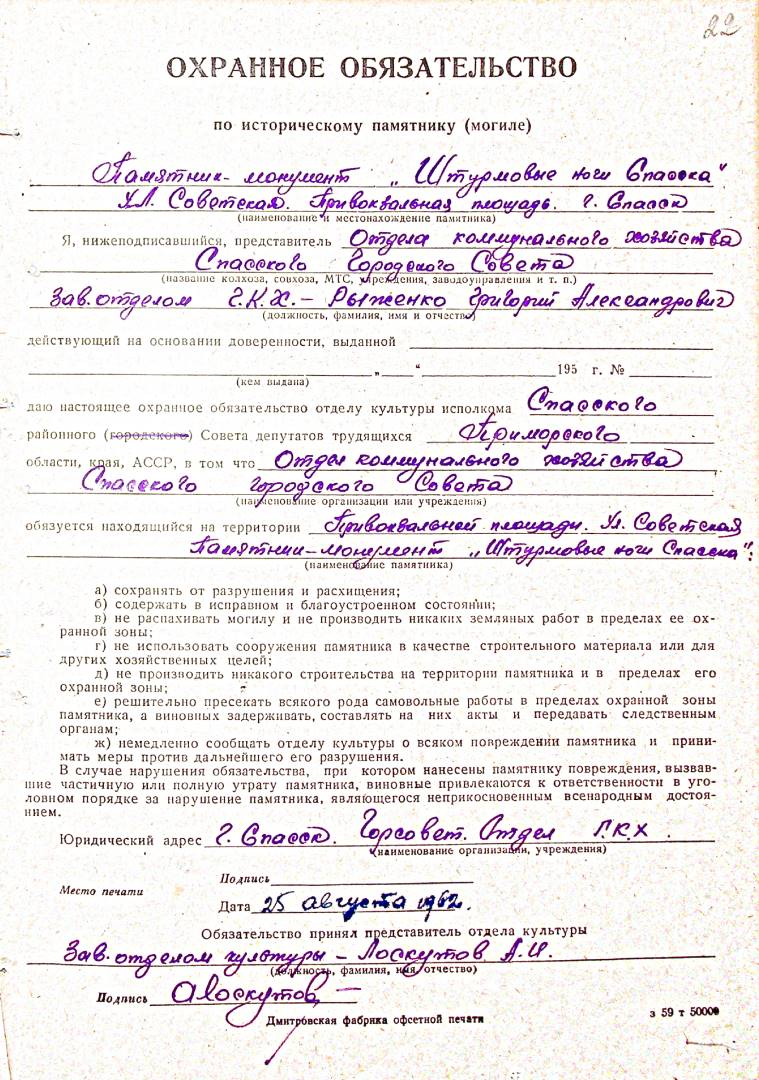 22
ОХРАННОЕ ОБЯЗАТЕЛЬСТВО
по историческому памятнику (могиле)
Памятник-монумент „Штурмовые ночи Спасска"
Ул. Советская. Привокзальная площадь. г. Спасск
(наименование и местонахождение памятника)
Я, нижеподписавшийся, представитель Отдела коммунального хозяйства
Спасского Городского Совета
(название колхоза, совхоза, МТС, учреждения, заводоуправления и т. п.)
Зав. отделом Г.К.Х. – Рыженко Григорий Александрович
(должность, фамилия, имя и отчество)
действующий на основании доверенности, выданной
„ “ 195 г. №
(кем выдана)
даю настоящее охранное обязательство отделу культуры исполкома Спасского
районного (городского) Совета депутатов трудящихся Приморского
области, края, АССР, в том что Отдел коммунального хозяйства
Спасского городского Совета
(наименование организации или учреждения)
обязуется находящийся на территории Привокзальной площади. Ул. Советская
Памятник-монумент „Штурмовые ночи Спасска":
(наименование памятника)
а) сохранять от разрушения и расхищения;
б) содержать в исправном и благоустроенном состоянии;
в) не распахивать могилу и не производить никаких земляных работ в пределах ее ох-
ранной зоны;
г) не использовать сооружения памятника в качестве строительного материала или для
других хозяйственных целей;
д) не производить никакого строительства на территории памятника и в пределах его
охранной зоны;
е) решительно пресекать всякого рода самовольные работы в пределах охранной зоны
памятника, а виновных задерживать, составлять на них акты и передавать следственным
органам;
ж) немедленно сообщать отделу культуры о всяком повреждении памятника и прини-
мать меры против дальнейшего его разрушения.
В случае нарушения обязательства, при котором нанесены памятнику повреждения, вызвав-
шие частичную или полную утрату памятника, виновные привлекаются к ответственности в уго-
ловном порядке за нарушение памятника, являющегося неприкосновенным всенародным достоя-
нием.
Юридический адрес г. Спасск. Горсовет. Отдел Г.К.Х.
(наименование организации, учреждения)
Подпись
Место печати
Дата 25 августа 1962.
Обязательство принял представитель отдела культуры
Зав. отделом культуры – Лоскутов А.И.
(должность, фамилия, имя, отчество)
Подпись АЛоскутов
Дмитровская фабрика офсетной печати
з 59 т 50000